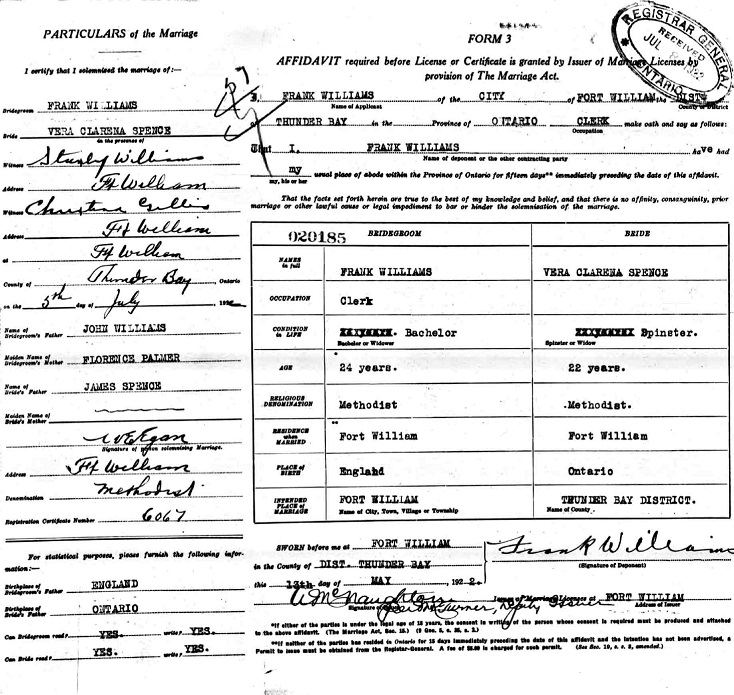 PARTICULARS of the Marriage
I certify that I solemnized the marriage of:—
Bridegroom FRANK WILLIAMS
Bride VERA CLARENA SPENCE
in the presence of
Witness Stanley Williams
Address Ft William
Witness Christina Gillis
Address Ft William
at Ft William
County of Thunder Bay, Ontario
on the 5th day of July, 192
Name of Bridegroom's Father JOHN WILLIAMS
Maiden Name of Bridegroom's Mother FLORENCE PALMER
Name of Bride's Father JAMES SPENCE
Maiden Name of Bride's Mother
Signature of person solemnizing Marriage.
Address Ft William
Denomination Methodist
Registration Certificate Number 6067
For statistical purposes, please furnish the following infor-
mation:—
Birthplace of Bridegroom's Father ENGLAND
Birthplace of Bride's Father ONTARIO
Can Bridegroom read? YES. write? YES.
Can Bride read? YES. write? YES.
FORM 3
REGISTRAR GENERAL
RECEIVED
JUL
ONTARIO
AFFIDAVIT required before License or Certificate is granted by Issuer of Marriage Licenses by
provision of The Marriage Act.
I, FRANK WILLIAMS of the CITY of FORT WILLIAM the DIST
Name of Applicant County or District
of THUNDER BAY in the Province of ONTARIO CLERK make oath and say as follows:
Occupation
That I, FRANK WILLIAMS have had
Name of deponent or the other contracting party
my usual place of abode within the Province of Ontario for fifteen days** immediately preceding the date of this affidavit.
my, his or her
That the facts set forth herein are true to the best of my knowledge and belief, and that there is no affinity, consanguinity, prior
marriage or other lawful cause or legal impediment to bar or hinder the solemnisation of the marriage.
020185 BRIDEGROOM BRIDE
NAMES in full FRANK WILLIAMS VERA CLARENA SPENCE
OCCUPATION Clerk
CONDITION in LIFE Bachelor Spinster.
Bachelor or Widower Spinster or Widow
AGE 24 years. 22 years.
RELIGIOUS DENOMINATION Methodist Methodist.
RESIDENCE when MARRIED Fort William Fort William
PLACE OF BIRTH England Ontario
INTENDED PLACE OF MARRIAGE FORT WILLIAM THUNDER BAY DISTRICT.
Name of City, Town, Village or Township Name of County
SWORN before me at FORT WILLIAM
Frank Williams
(Signature of Deponent)
in the County of DIST. THUNDER BAY
this 13th day of MAY 1922.
Issuer of Marriage Licenses at FORT WILLIAM
Address of Issuer
*If either of the parties is under the legal age of 18 years, the consent in writing of the person whose consent is required must be produced and attached
to the above affidavit. (The Marriage Act, Sec. 15.)
**If neither of the parties has resided in Ontario for 15 days immediately preceding the date of this affidavit and the intention has not been advertised, a
Permit to issue must be obtained from the Registrar-General. A fee of $5.00 is charged for such permit.